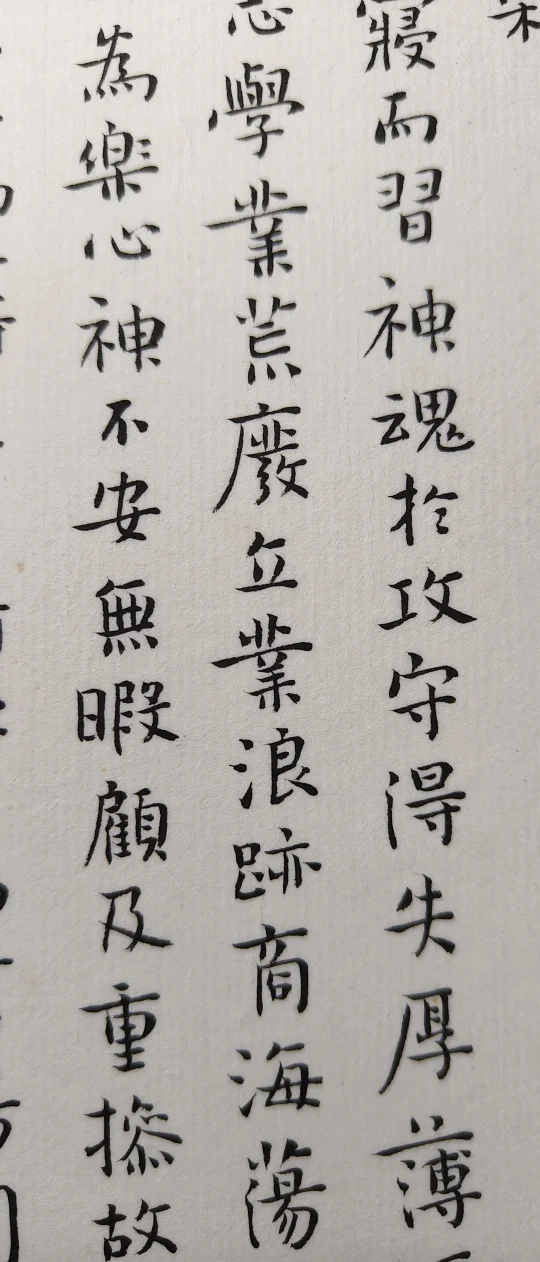 寢而習神魂於攻守得失厚薄
學業荒廢立業浪跡商海蕩
為樂心神不安無暇顧及重操故